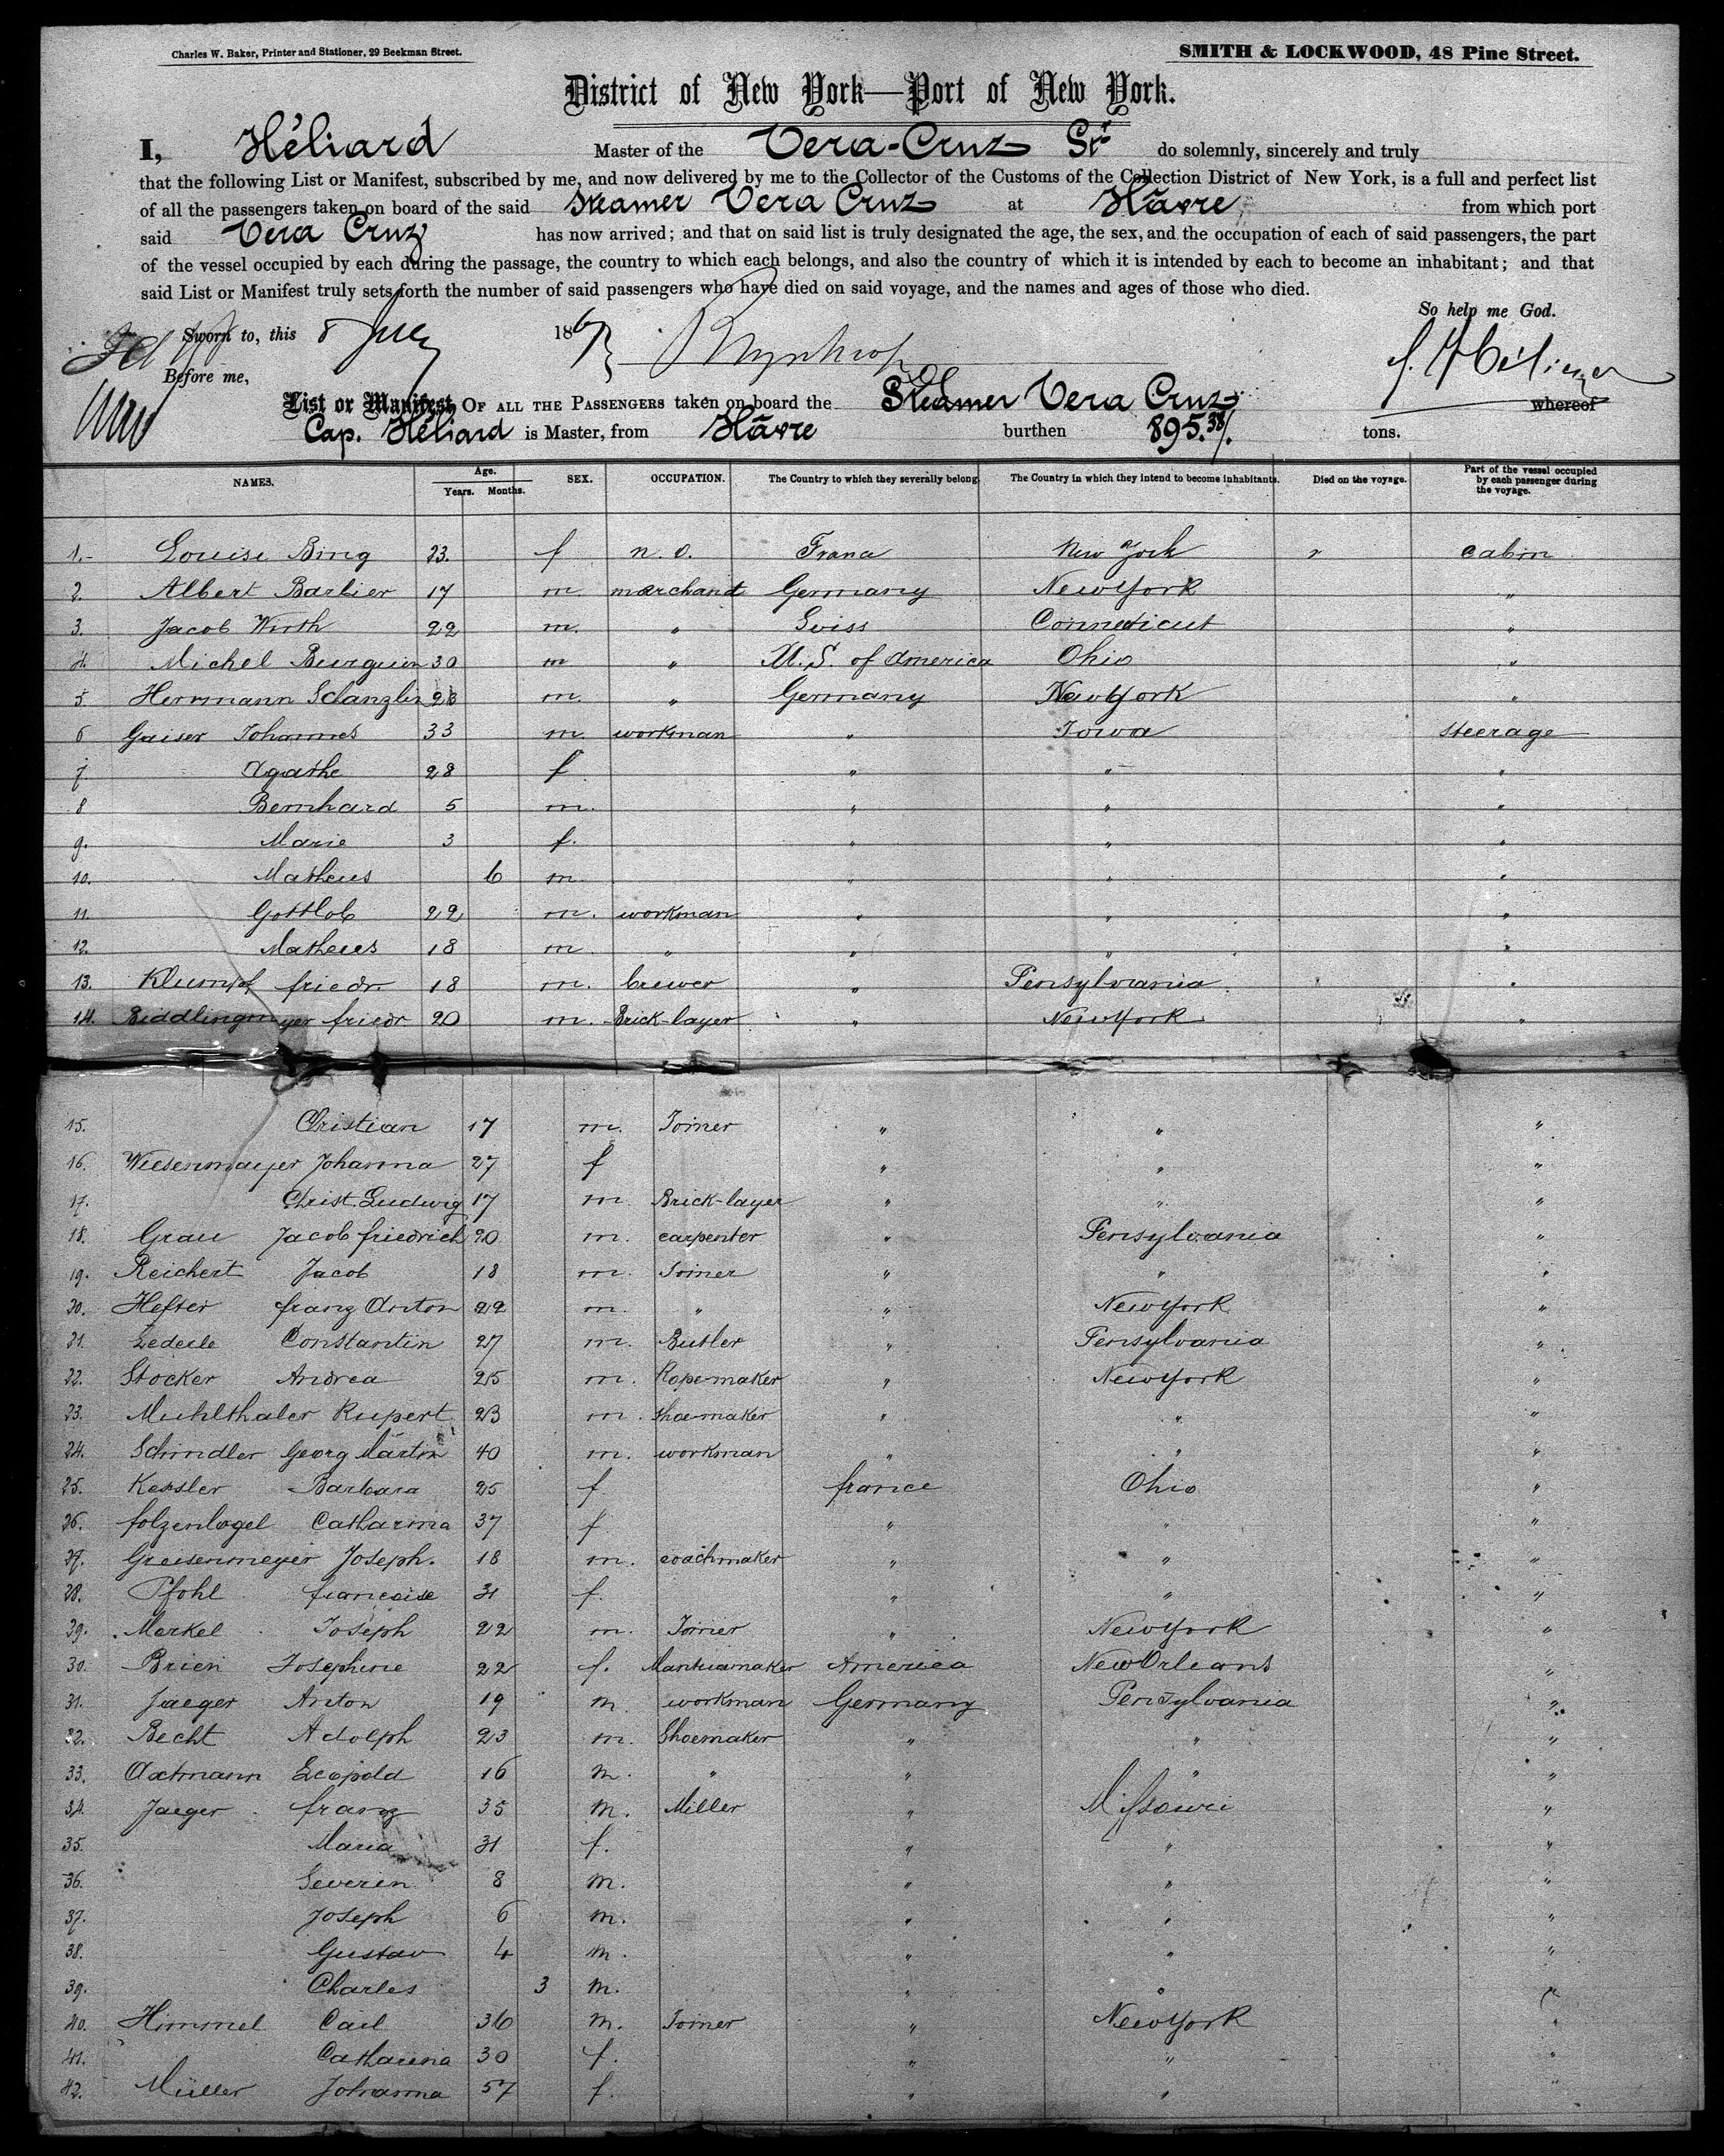 Charles W. Baker, Printer and Stationer, 29 Beekman Street.
SMITH & LOCKWOOD, 48 Pine Street.
District of New York—Port of New York.
I, Héliard Master of the Vera-Cruz Str do solemnly, sincerely and truly
that the following List or Manifest, subscribed by me, and now delivered by me to the Collector of the Customs of the Collection District of New York, is a full and perfect list
of all the passengers taken on board of the said Steamer Vera Cruz at Hâvre from which port
said Vera Cruz has now arrived; and that on said list is truly designated the age, the sex, and the occupation of each of said passengers, the part
of the vessel occupied by each during the passage, the country to which each belongs, and also the country of which it is intended by each to become an inhabitant; and that
said List or Manifest truly sets forth the number of said passengers who have died on said voyage, and the names and ages of those who died.
So help me God.
Sworn to, this 8 186
Before me,
List or Manifest OF ALL THE PASSENGERS taken on board the Steamer Vera Cruz whereof
Cap. Héliard is Master, from Hâvre burthen 895.38/. tons.
NAMES. Age. Years. Months. SEX. OCCUPATION. The Country to which they severally belong. The Country in which they intend to become inhabitants. Died on the voyage. Part of the vessel occupied by each passenger during the voyage.
1. Louise Bing 23. f n. o. France New York cabin
2. Albert Barbier 17 m marchand Germany New York "
3. Jacob Wirth 22 m. " Swiss Connecticut "
4. Michel Burguin 30 m " U. S. of America Ohio "
5. Herrmann Schanzlin 23 m. " Germany New York "
6 Gaiser Johannes 33 m. workman " Iowa steerage
7. Agathe 28 f " " "
8 Bernhard 5 m. " " "
9. Marie 3 f. " " "
10. Matheus 6 m. " " "
11. Gottlob 22 m. workman " " "
12. Matheus 18 m " " " "
13. Klumpf friedr. 18 m. brewer " Pensylvania "
14. Biddlingmeyer friedr 20 m. Brick-layer " New York "
15. Christian 17 m. Joiner " " "
16. Wiesenmayer Johanna 27 f " " "
17. Christ. Ludwig 17 m. Brick-layer " " "
18. Grau Jacob friedrich 20 m. carpenter " Pensylvania "
19. Reichert Jacob 18 m. Joiner " " "
20. Hefter franz Anton 22 m. " " New York "
21. Lederle Constantin 27 m. Butler " Pensylvania "
22. Stocker Andrea 25 m. Rope-maker " New York "
23. Muhlthaler Rupert 23 m. shoe-maker " " "
24. Schindler Georg Martin 40 m. workman " " "
25. Kessler Barbara 25 f. france Ohio "
26. folzenlogel Catharina 37 f " " "
27. Greisenmeyer Joseph. 18 m. coachmaker " " "
28. Pfohl francoise 31 f. " " "
29. Markel Joseph 22 m. Joiner " New York "
30. Brien Josephine 22 f. Mantuamaker America New Orleans "
31. Jaeger Anton 19 m. workman Germany Pensylvania "
32. Becht Adolph 23 m. Shoemaker " " "
33. Axtmann Leopold 16 m. " " " "
34. Jaeger franz 35 m. Miller " Missouri "
35. Maria 31 f. " " "
36. Severin 8 m. " " "
37. Joseph 6 m. " " "
38. Gustav 4 m. " " "
39. Charles 3 m. " " "
40. Himmel Carl 36 m. Joiner " New York "
41. Catharina 30 f. " " "
42. Müller Johanna 57 f. " " "